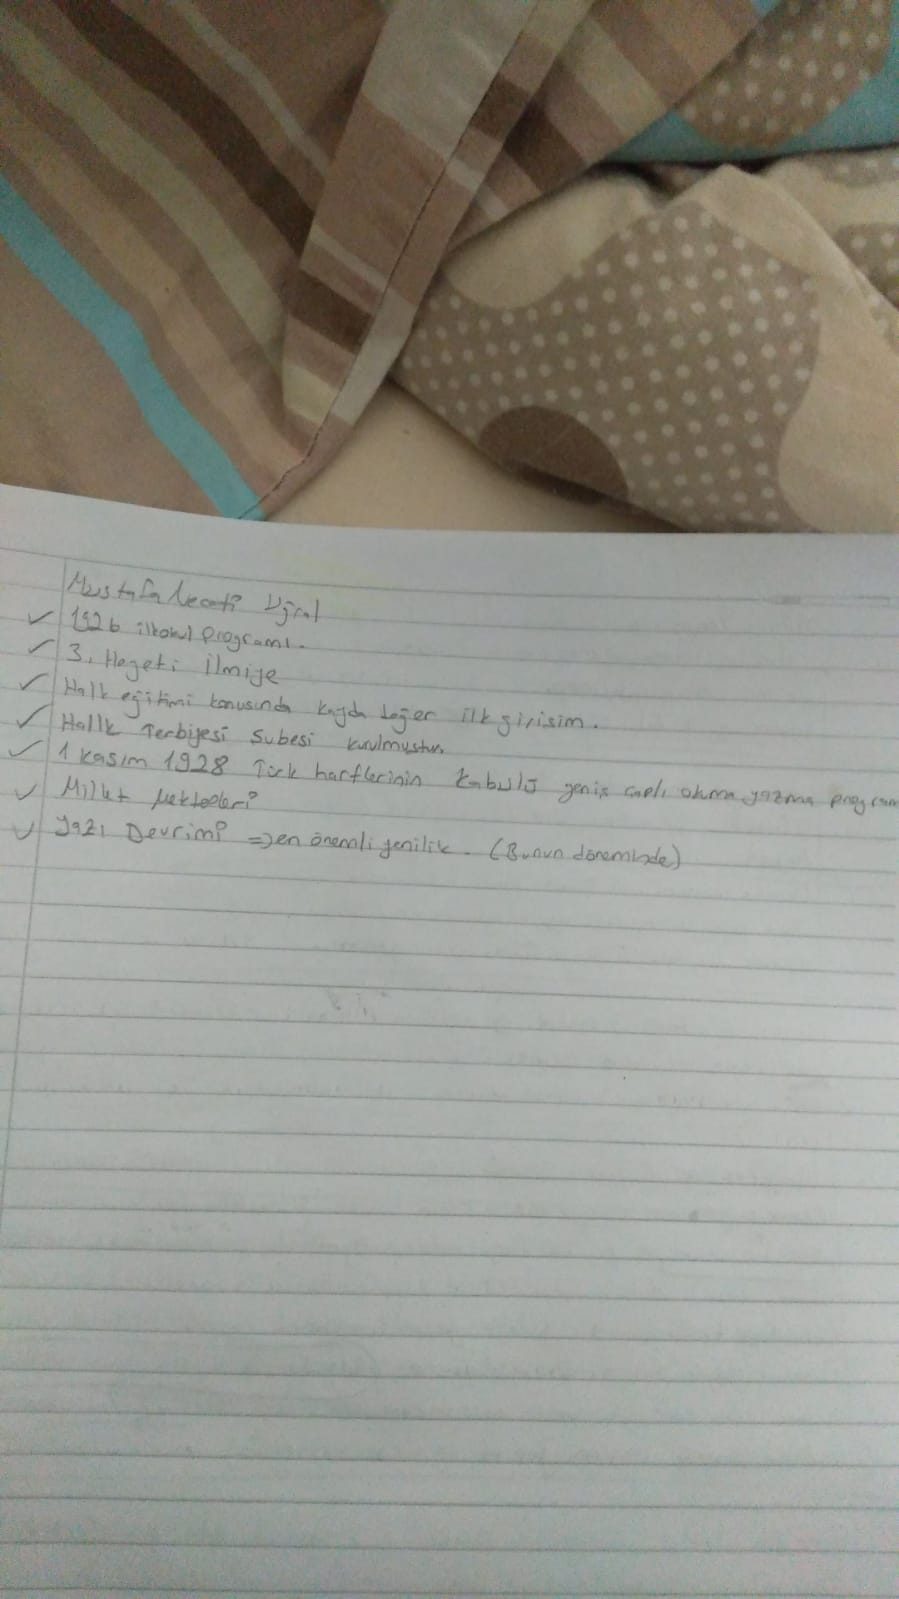 Mustafa Necati Uğral
✓ 1926 ilkokul programı.
✓ 3. Heyeti İlmiye
✓ Halk eğitimi konusunda kayda değer ilk girişim.
✓ Halk Terbiyesi Şubesi kurulmuştur.
✓ 1 Kasım 1928 Türk harflerinin kabulü geniş çaplı okuma yazma program
✓ Millet Mektepleri
✓ Yazı Devrimi => en önemli yenilik. (Bunun döneminde)